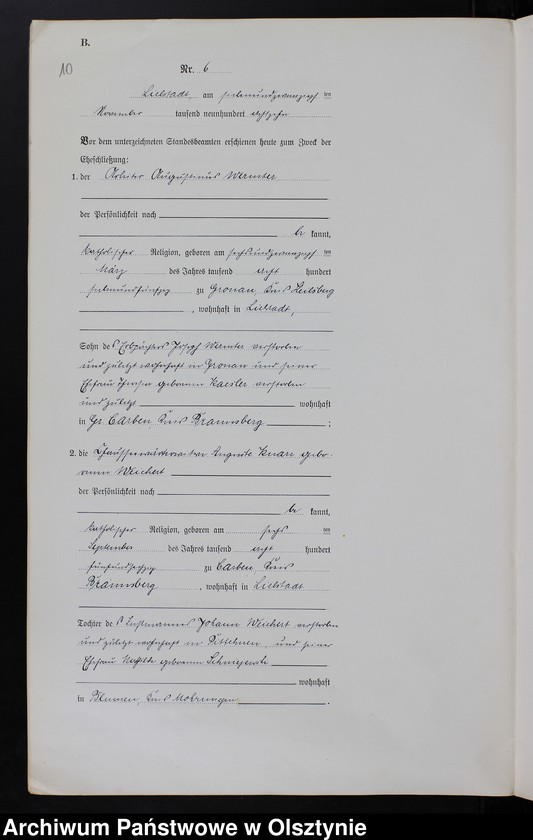 B.
10
Nr. 6
Liebstadt, am siebenundzwanzigsten
November tausend neunhundert achtzehn
Vor dem unterzeichneten Standesbeamten erschienen heute zum Zweck der
Eheschließung:
1. der Arbeiter Augustinus Wermter
der Persönlichkeit nach
be kannt,
katholischer Religion, geboren am sechsundzwanzigsten
März des Jahres tausend acht hundert
siebenundfünfzig zu Gronau, Kreis Heilsberg
, wohnhaft in Liebstadt,
Sohn des Erbpächters Joseph Wermter verstorben
und zuletzt wohnhaft in Gronau und seiner
Ehefrau Theresia geborenen Kaesler verstorben
und zuletzt wohnhaft
in Gr Carben, Kreis Braunsberg ;
2. die Auguste Knarr gebo-
rene Weichert
der Persönlichkeit nach
be kannt,
katholischer Religion, geboren am sechsten
September des Jahres tausend acht hundert
fünfundsechzig zu Carben, Kreis
Braunsberg , wohnhaft in Liebstadt
Tochter des Instmannes Johann Weichert verstorben
und zuletzt wohnhaft in und seiner
Ehefrau geborenen
wohnhaft
in Kreis Mohrungen .
Archiwum Państwowe w Olsztynie